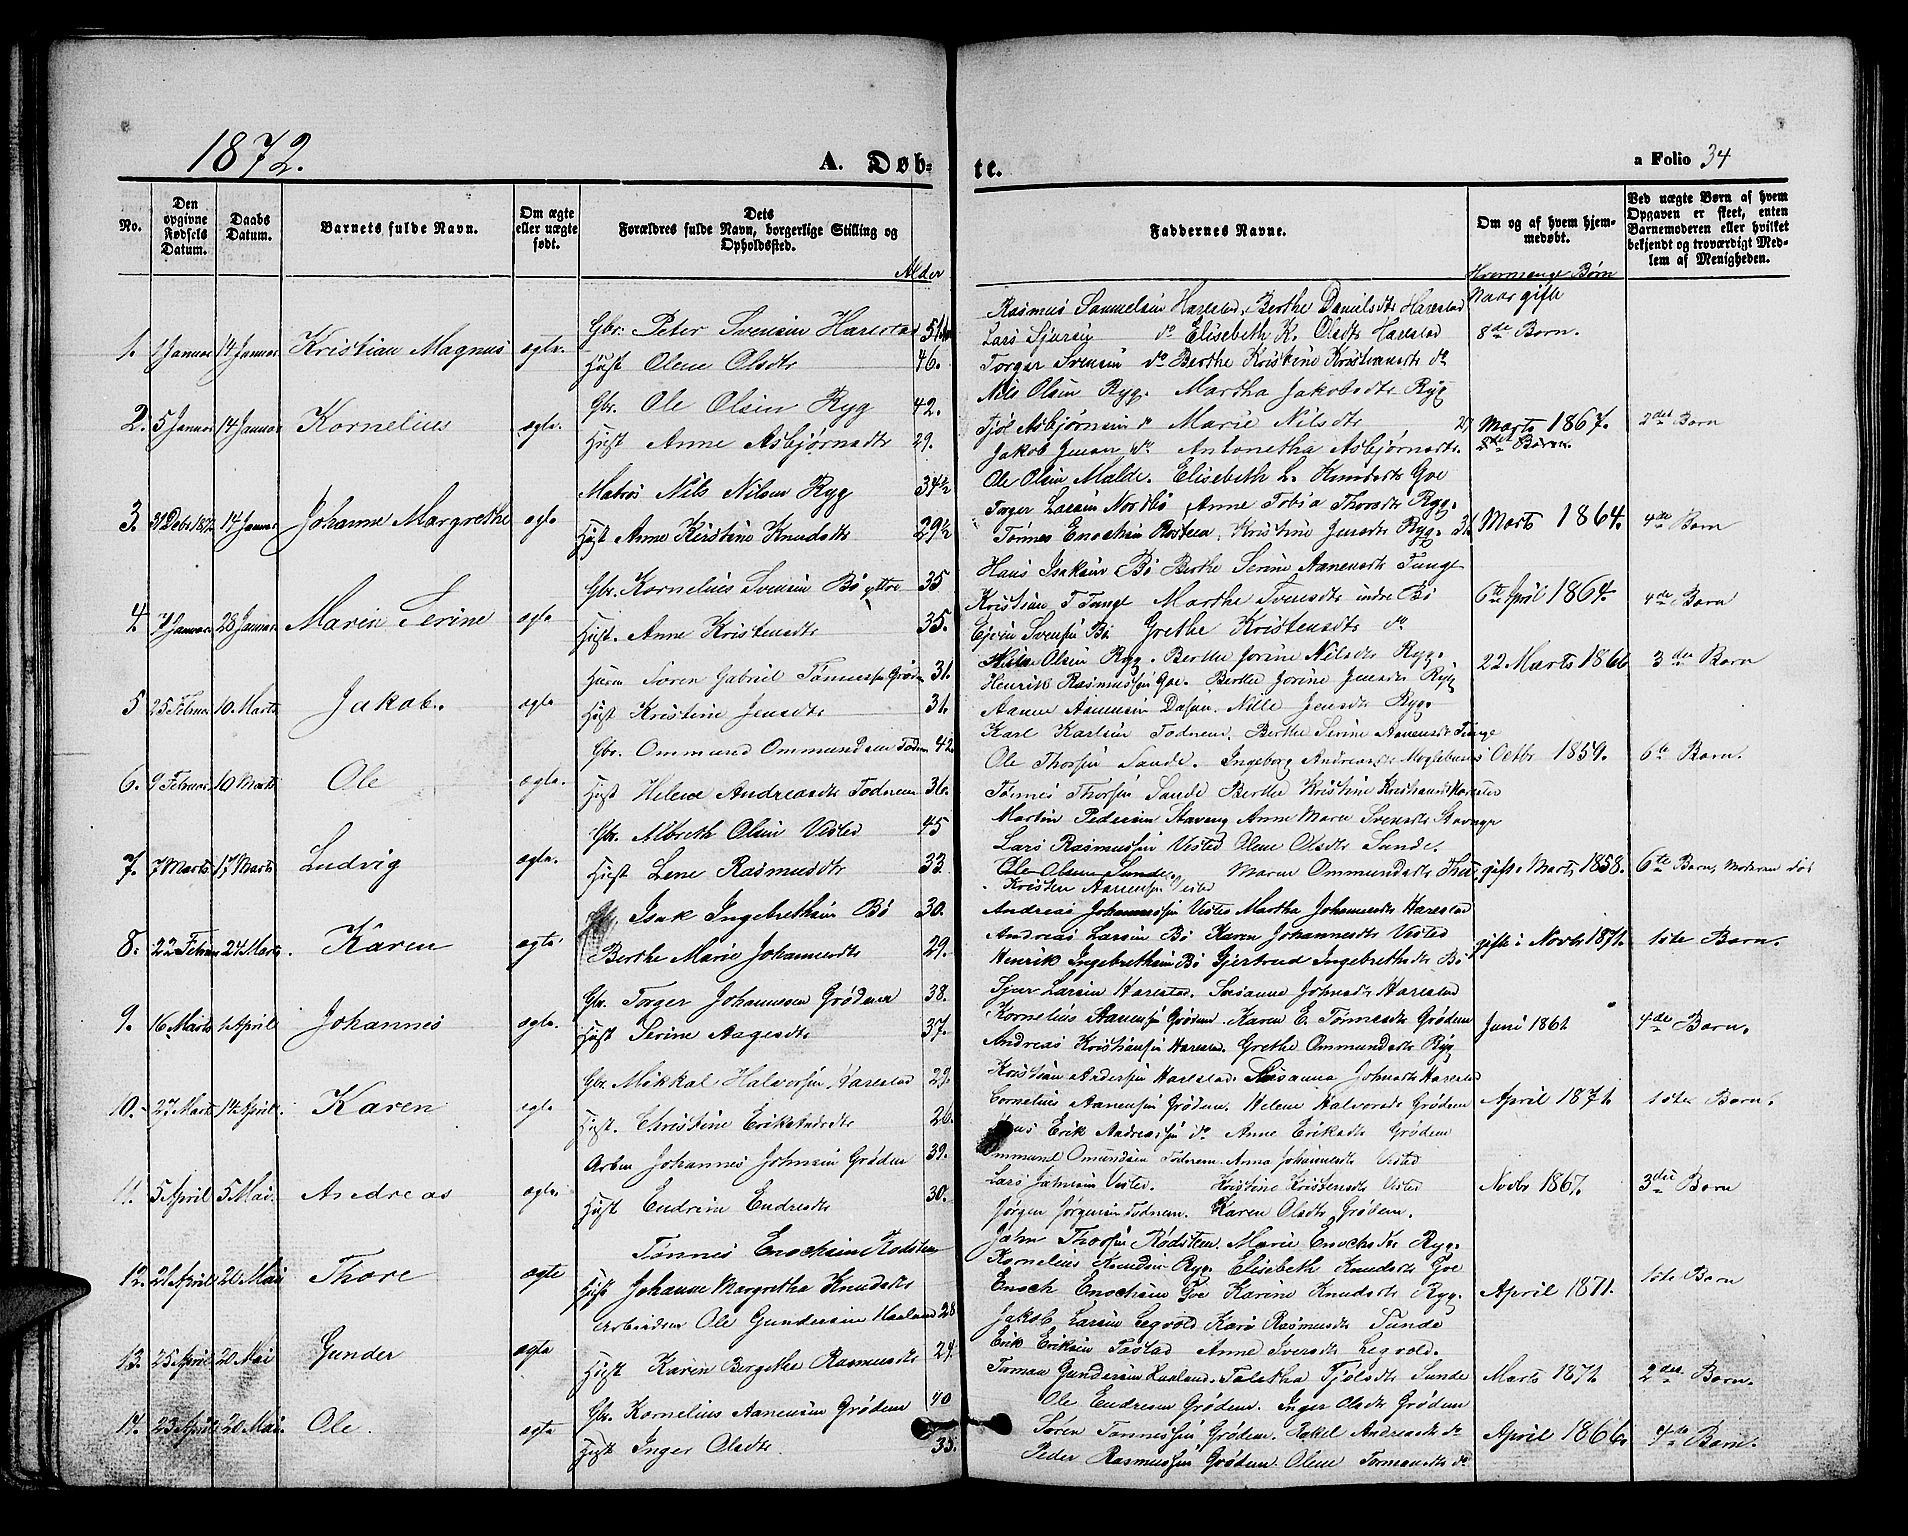 1872.
A. Døb-
te.
a Folio 34
No.
Den opgivne Fødsels Datum.
Daabs Datum.
Barnets fulde Navn.
Om ægte eller uægte født.
Dets Forældres fulde Navn, borgerlige Stilling og Opholdssted.
Alder
Faddernes Navne.
Om og af hvem hjem-medøbt.
Hvormange Børn
Naar gifte
Ved uægte Børn af hvem Opgaven er skeet, enten Barnemoderen eller hvilket bekjendt og troværdigt Med-lem af Menigheden.
1. 1 Januar 14 Januar Kristian Magnus ægte.
Gbr. Peter Svensen Harestad 51
Hust Olene Olsdtr 46.
Rasmus Samuelsen Harestad, Berthe Danielsdtr Harestad
Lars Sjursen do Elisabeth K. Olsdtr Harestad
Torger Svensen do Berthe Kristine Kristiansdtr do
8de Børn.
2. 5 Januar 14 Januar Kornelius ægte.
Gbr. Ole Olsen Ryg 42.
Hust Anne Asbjørnsdtr 29.
Nils Olsen Ryg. Martha Jakobsdtr Ryg
Asbjørnsen do Marie Nilsdtr
Jakob Jensen do Antonetha Asbjørnsdtr.
27 Marts 1867. 2det Børn
3. 31 Debr 1871 14 Januar Johanne Margrethe ægte
Matros Nils Nilsen Ryg 34½
Hust Anne Kirstine Knudsdtr 29½
Ole Olsen Malde. Elisabeth L. Knudsdtr Goe
Torger Larsen Nordbø, Anne Tobia Thorsdtr Ryg.
Tønnes Enochsen Rosteen, Kristine Jensdtr Ryg.
31 Marts 1864. 4de Børn
4. 7 Januar 28 Januar Maren Serine ægte
Gbr. Kornelius Svensen Bø yttre 35
Hust. Anne Kristensdtr 35.
Hans Isaksen Bø Berthe Serine Aanensdtr Tunge
Kristian T Tunge Marthe Svensdtr indre Bø
Ejvin Svensen Bø Grethe Kristensdtr do
6te April 1864. 4de Børn
5 25 Februar 10 Marts Jakob. ægte
Søren Gabriel Tønnesen Grødem 31.
Hust Kristine Jensdtr 31.
Nils Olsen Ryg. Berthe Jorine Nilsdtr Ryg.
Henrik Rasmussen Goe. Berthe Jorine Jensdtr Ryg
Aanen Aanensen Nille Jensdtr Ryg.
22 Marts 1866 3die Børn
6. 9 Februar 10 Marts Ole ægte.
Gbr. Ommund Ommundsen Todnem 42
Hust Helene Andreasdtr Todnem 36.
Karl Karlsen Todnem. Berthe Serine Aanensdtr Tunge
Ole Thorsen Sande. Ingeborg Andreasdtr
Tønnes Thorsen Sande Berthe Kristine Kristiansdtr Harestad
Octbr 1859. 6te Børn.
7. 7 Marts 17 Marts Ludvig ægte.
Gbr. Albreth Olsen Visted 45
Hust Lene Rasmusdtr 33
Martin Pedersen Stavang Anne Marie Svensdtr Stavange
Lars Rasmussen Visted Olene Olsdtr Sunde.
Ole Olsen Sunde, Maren Ommundsdtr
Kristen Aanensen Visted
gift Marts 1858. 6te Børn, Moderen død
8. 22 Februar 24 Marts Karen ægte
Isak Ingebrethsen Bø 30.
Berthe Marie Johannesdtr 29.
Andreas Johannessen Visted Martha Johannesdtr Harestad
Andreas Larsen Bø Karen Johannesdtr Visted
Henrik Ingebrethsen Bø Gjertrud Ingebrethsdtr Bø
gifte i Novbr 1871. 1ste Børn.
9. 16 Marts 1 April Johannes ægte.
Gbr. Torger Johannesen Grødem 38.
Hust Serine Aagesdtr 37.
Sjur Larsen Harestad. Susanne Johnsdtr Harestad
Kornelius Aanensen Grødem. Karen E. Tønnesdtr Grødem
Andreas Kristiansen Harestad. Grethe Ommundsdtr Ryg
Juni 1861 4de Børn.
10.- 27 Marts 14 April. Karen ægte
Gbr. Mikkal Halvorsen Harestad 29.
Hust. Christine Eriksdtr 26.
Kristian Andersen Harestad. Susanna Johnsdtr Harestad
Cornelius Aanensen Grødem. Helene Halvorsdtr Grødem
Erik Andreassen do Anne Eriksdtr Grødem
April 1871. 1ste Børn.
11. 5 April 5 Mai. Andreas ægte.
Arben Johannes Johnsen Grødem 39.
Hust Endrine Endresdtr 30.
Ommund Omundsen Todnem. Anna Johannesdtr Visted
Lars Johnsen Visted. Kristine Kristensdtr Visted
Jørgen Jørgensen Todnem. Karen Olsdtr Grødem.
Novbr 1867. 3die Børn
12. 21 April 20 Mai Thore ægte
Tønnes Enochsen Rodsteen
Hust Johanne Margretha Knudsdtr
John Thorsen Rødsteen. Marie Enochsdtr Ryg.
Kornelius Knudsen Ryg. Elisebeth Knudsdtr Goe
Enoch Enochsen Goe Karine Knudsdtr Ryg.
April 1871. 1ste Børn
13. 25 April 20 Mai Gunder ægte
Arbeideren Ole Gundersen Haaland 28
Hust Karen Bergitha Rasmusdtr 24.
Jakob Larsen Legvold Kari Rasmusdtr Sunde
Erik Eriksen Tastad Anne Sversdtr Legvold.
Tormod Gundersen Haaland. Taletha Tjølsdtr Sunde
Marts 1871 2det Børn.
14. 23 April 20 Mai. Ole. ægte
Gbr. Kornelius Aanensen Grødem 40
Hust Inger Olsdtr 35.
Ole Endresen Grødem. Inger Olsdtr Grødem
Søren Tønnessen Grødem. Rakel Andreasdtr do
Peder Rasmussen Grødem. Olene Tormodsdtr do
April 1866. 4de Børn.